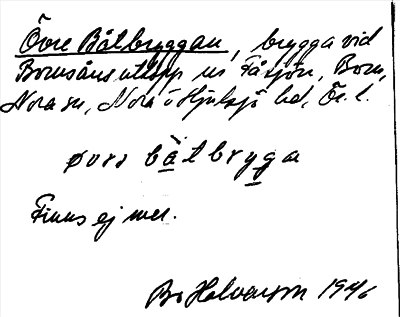 Övre Båtbryggan, brygga vid
Bornsåns utlopp ur Fåsjön, Born,
Nora sn, Nora o Hjulsjö hd, Ör. l.
øvrə båtbryga
Finns ej mer.
Bo Halvarson 1946